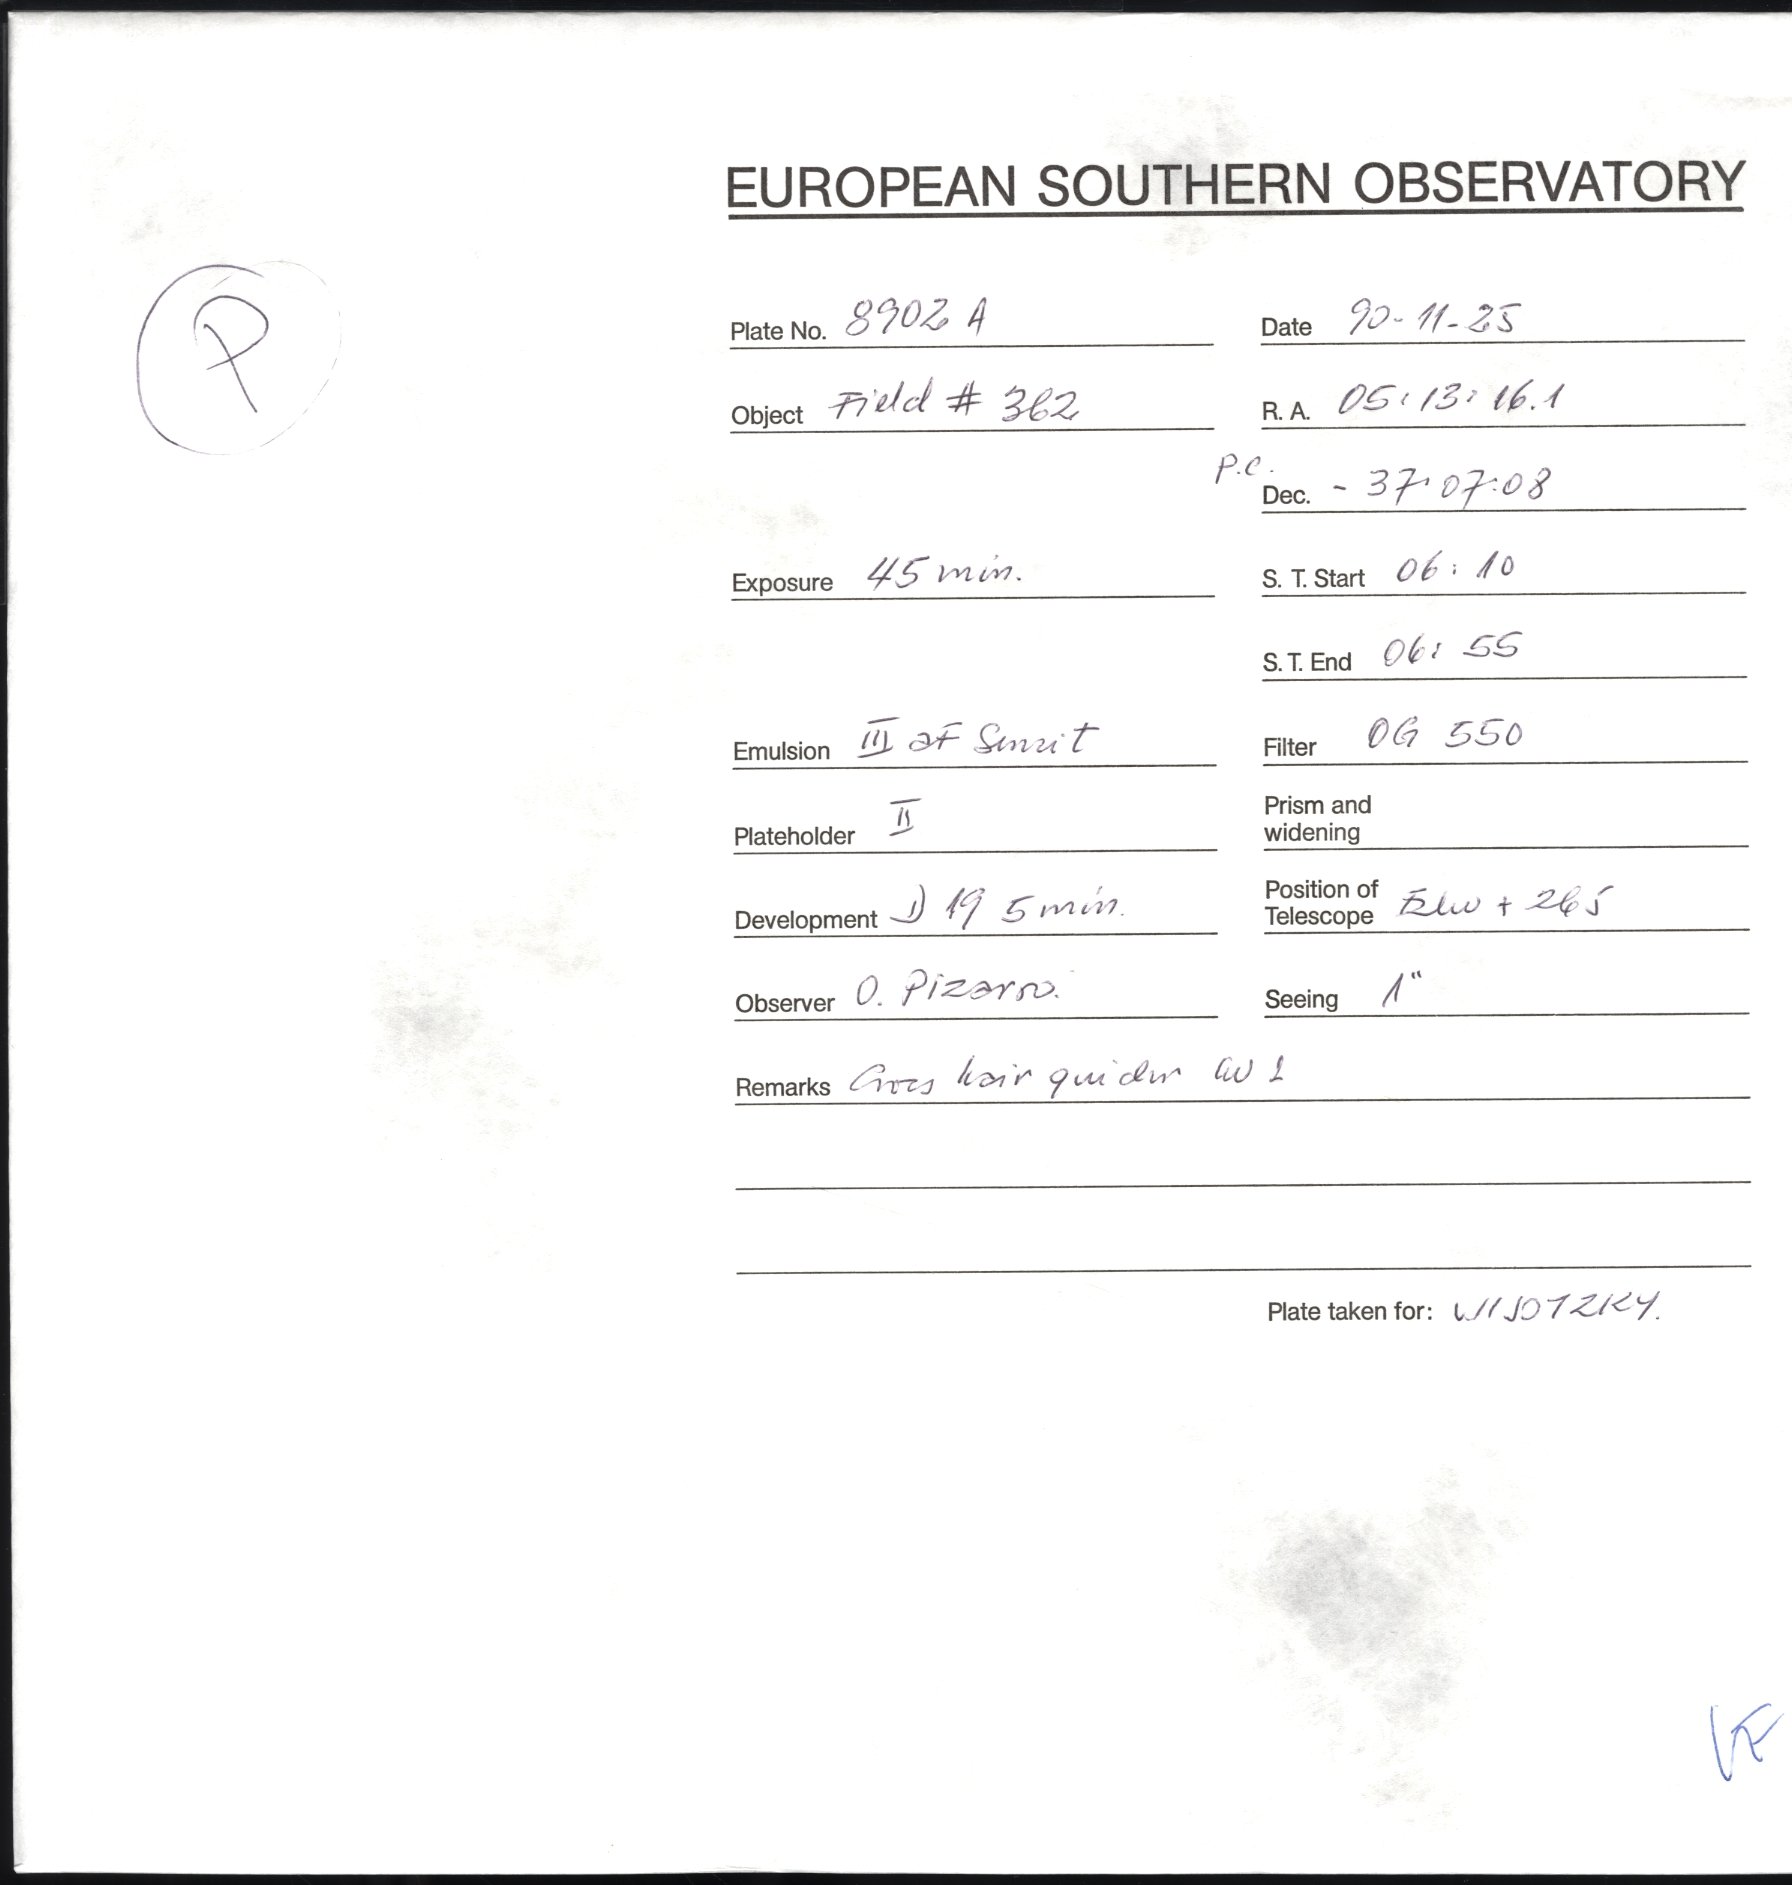 EUROPEAN SOUTHERN OBSERVATORY
P
Plate No. 8902 A Date 90-11-25
Object Field # 362 R. A. 05:13:16.1
P.C. Dec. - 37:07:08
Exposure 45 min. S. T. Start 06:10
S. T. End 06:55
Emulsion III aF Sensit Filter OG 550
Plateholder II Prism and widening
Development D 19 5 min. Position of Telescope + 265
Observer O. Pizarro. Seeing 1"
Remarks Cross hair guider
Plate taken for: WISOTZKY.